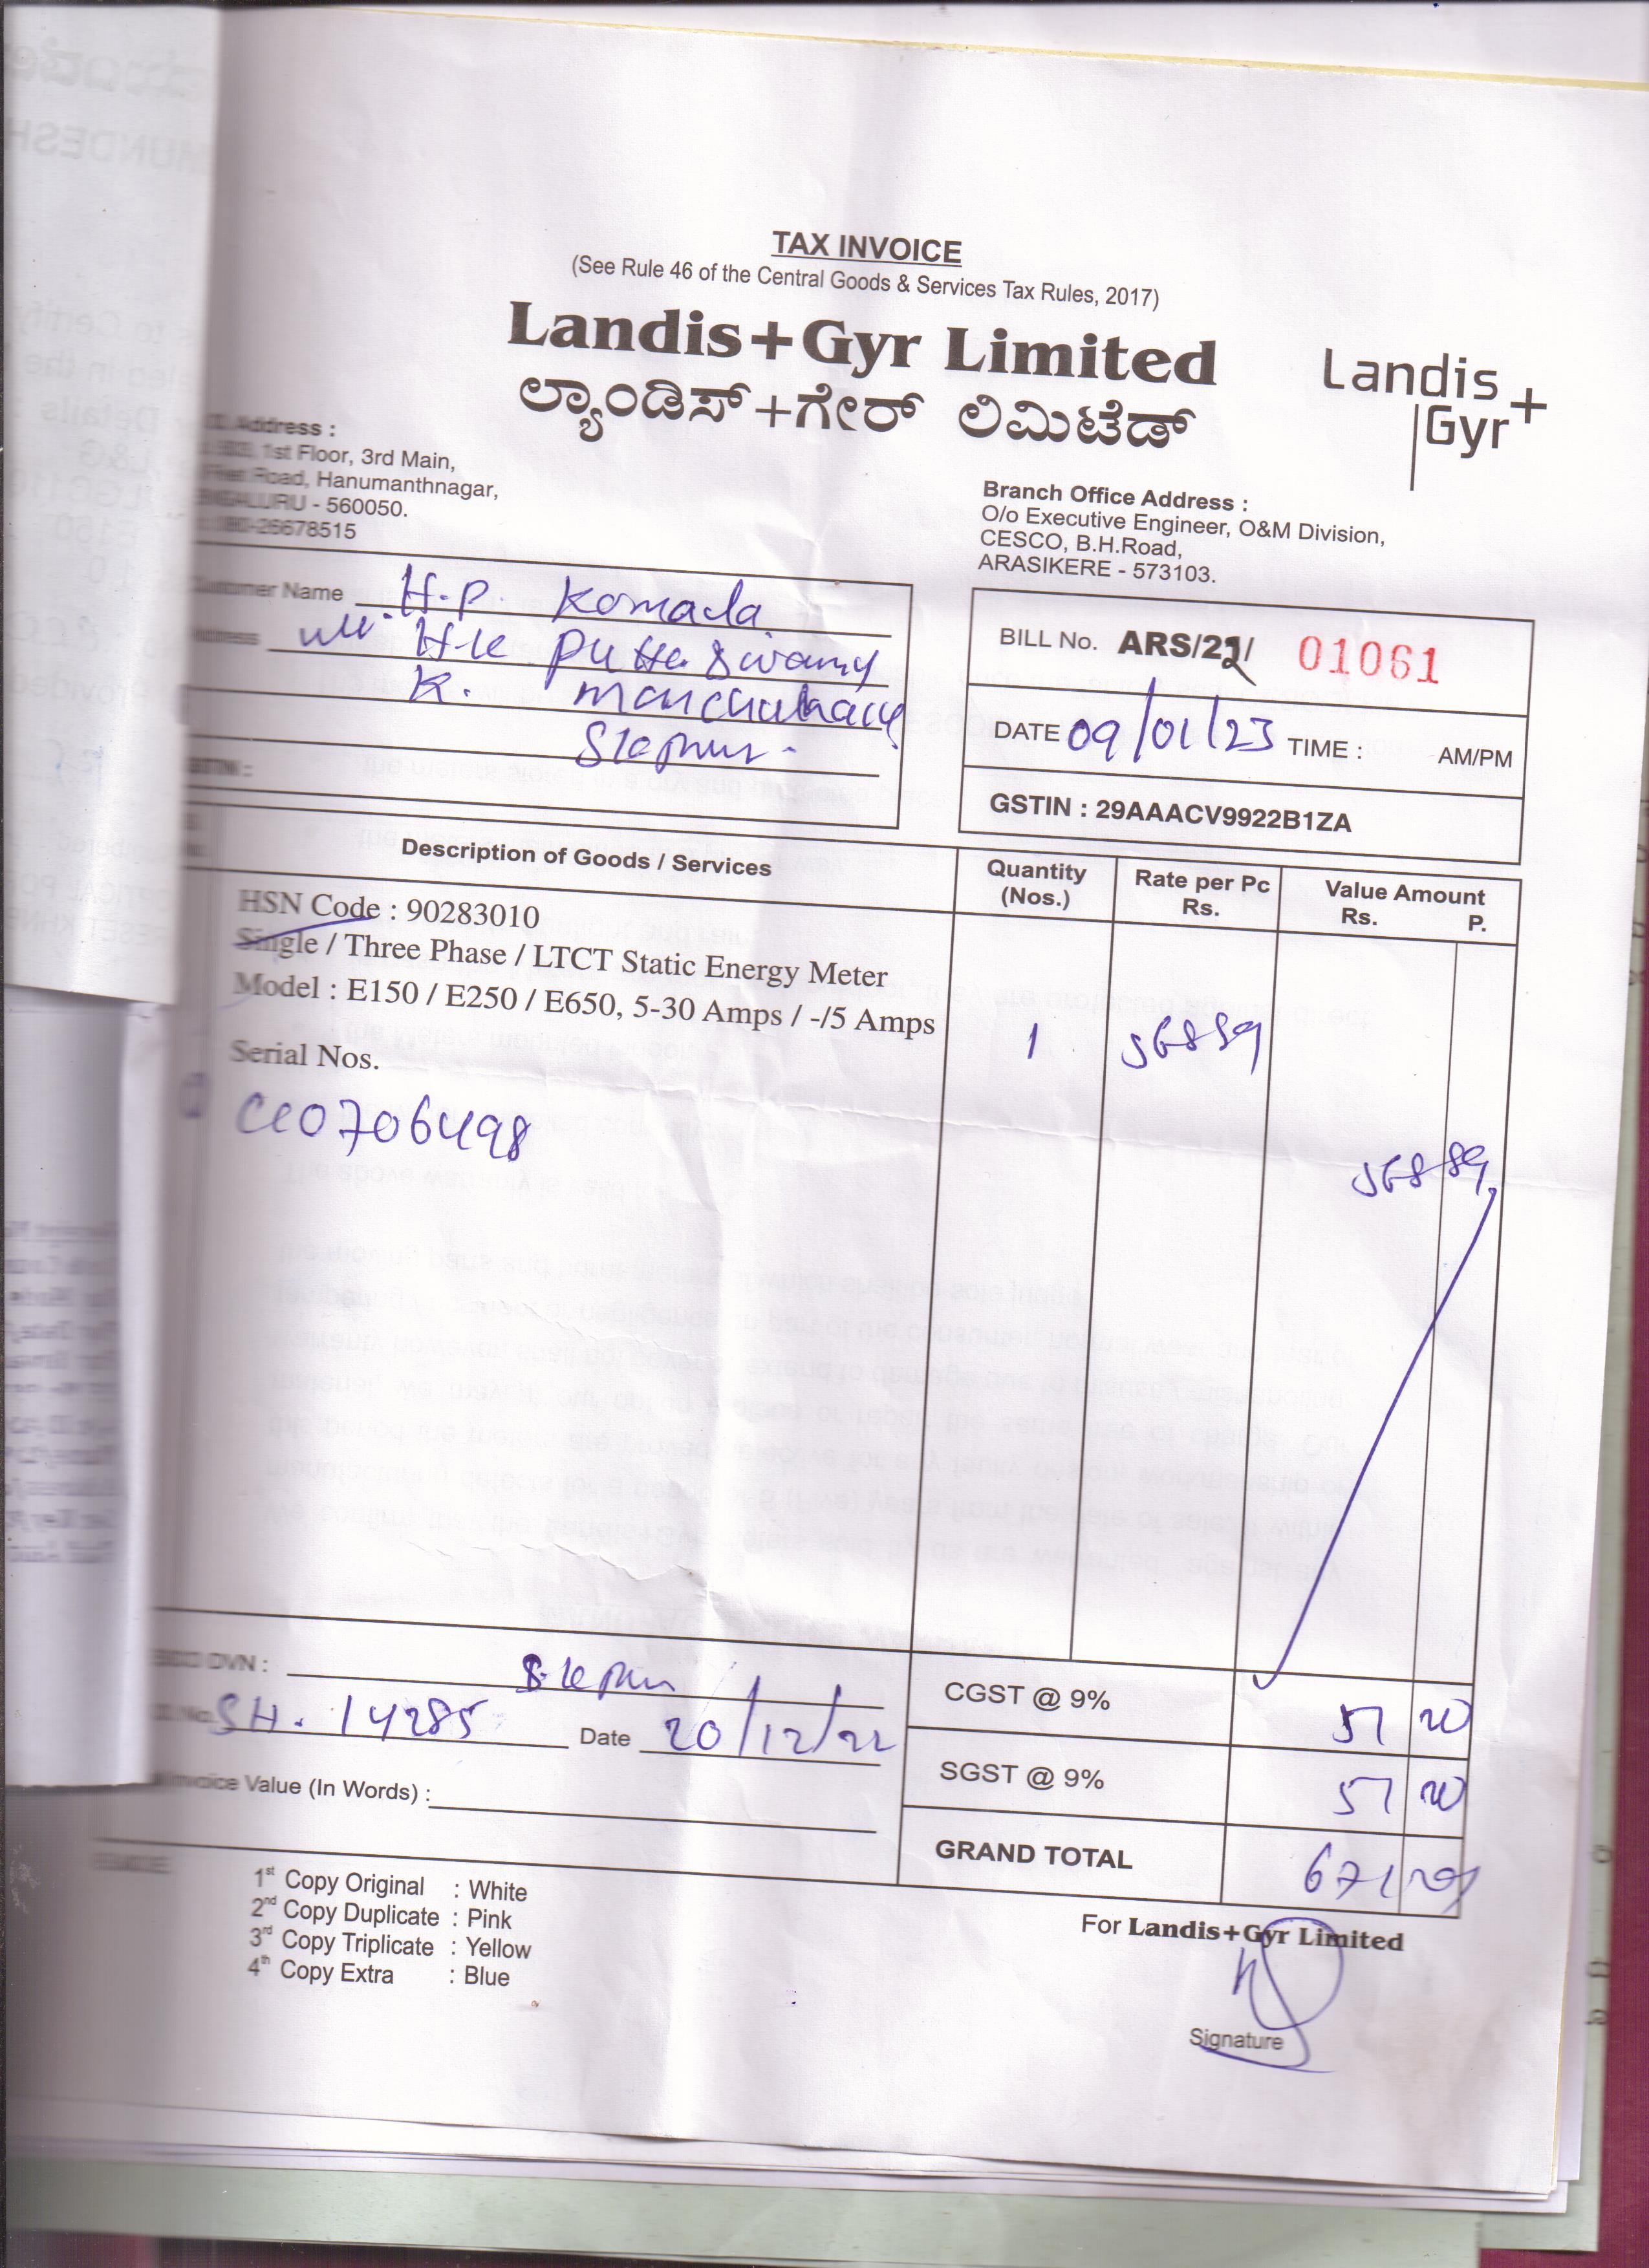 TAX INVOICE
(See Rule 46 of the Central Goods & Services Tax Rules, 2017)
Landis+Gyr Limited
ಲ್ಯಾಂಡಿಸ್+ಗೇರ್ ಲಿಮಿಟೆಡ್
Landis
Gyr+
Address :
1st Floor, 3rd Main,
Road, Hanumanthnagar,
- 560050.
-26678515
Branch Office Address :
O/o Executive Engineer, O&M Division,
CESCO, B.H.Road,
ARASIKERE - 573103.
Customer Name H.P. Komala
H.K Putta Swamy
K.
BILL No. ARS/22/ 01061
DATE 09/01/23 TIME : AM/PM
GSTIN : 29AAACV9922B1ZA
Description of Goods / Services
Quantity (Nos.)
Rate per Pc Rs.
Value Amount Rs. P.
HSN Code : 90283010
Single / Three Phase / LTCT Static Energy Meter
Model : E150 / E250 / E650, 5-30 Amps / -/5 Amps
1 568 89
Serial Nos.
568 89
DVN :
SH. 14285 Date 20/12/22
Invoice Value (In Words) :
CGST @ 9% 51 20
SGST @ 9% 51 20
GRAND TOTAL 671
1st Copy Original : White
2nd Copy Duplicate : Pink
3rd Copy Triplicate : Yellow
4th Copy Extra : Blue
For Landis+Gyr Limited
Signature